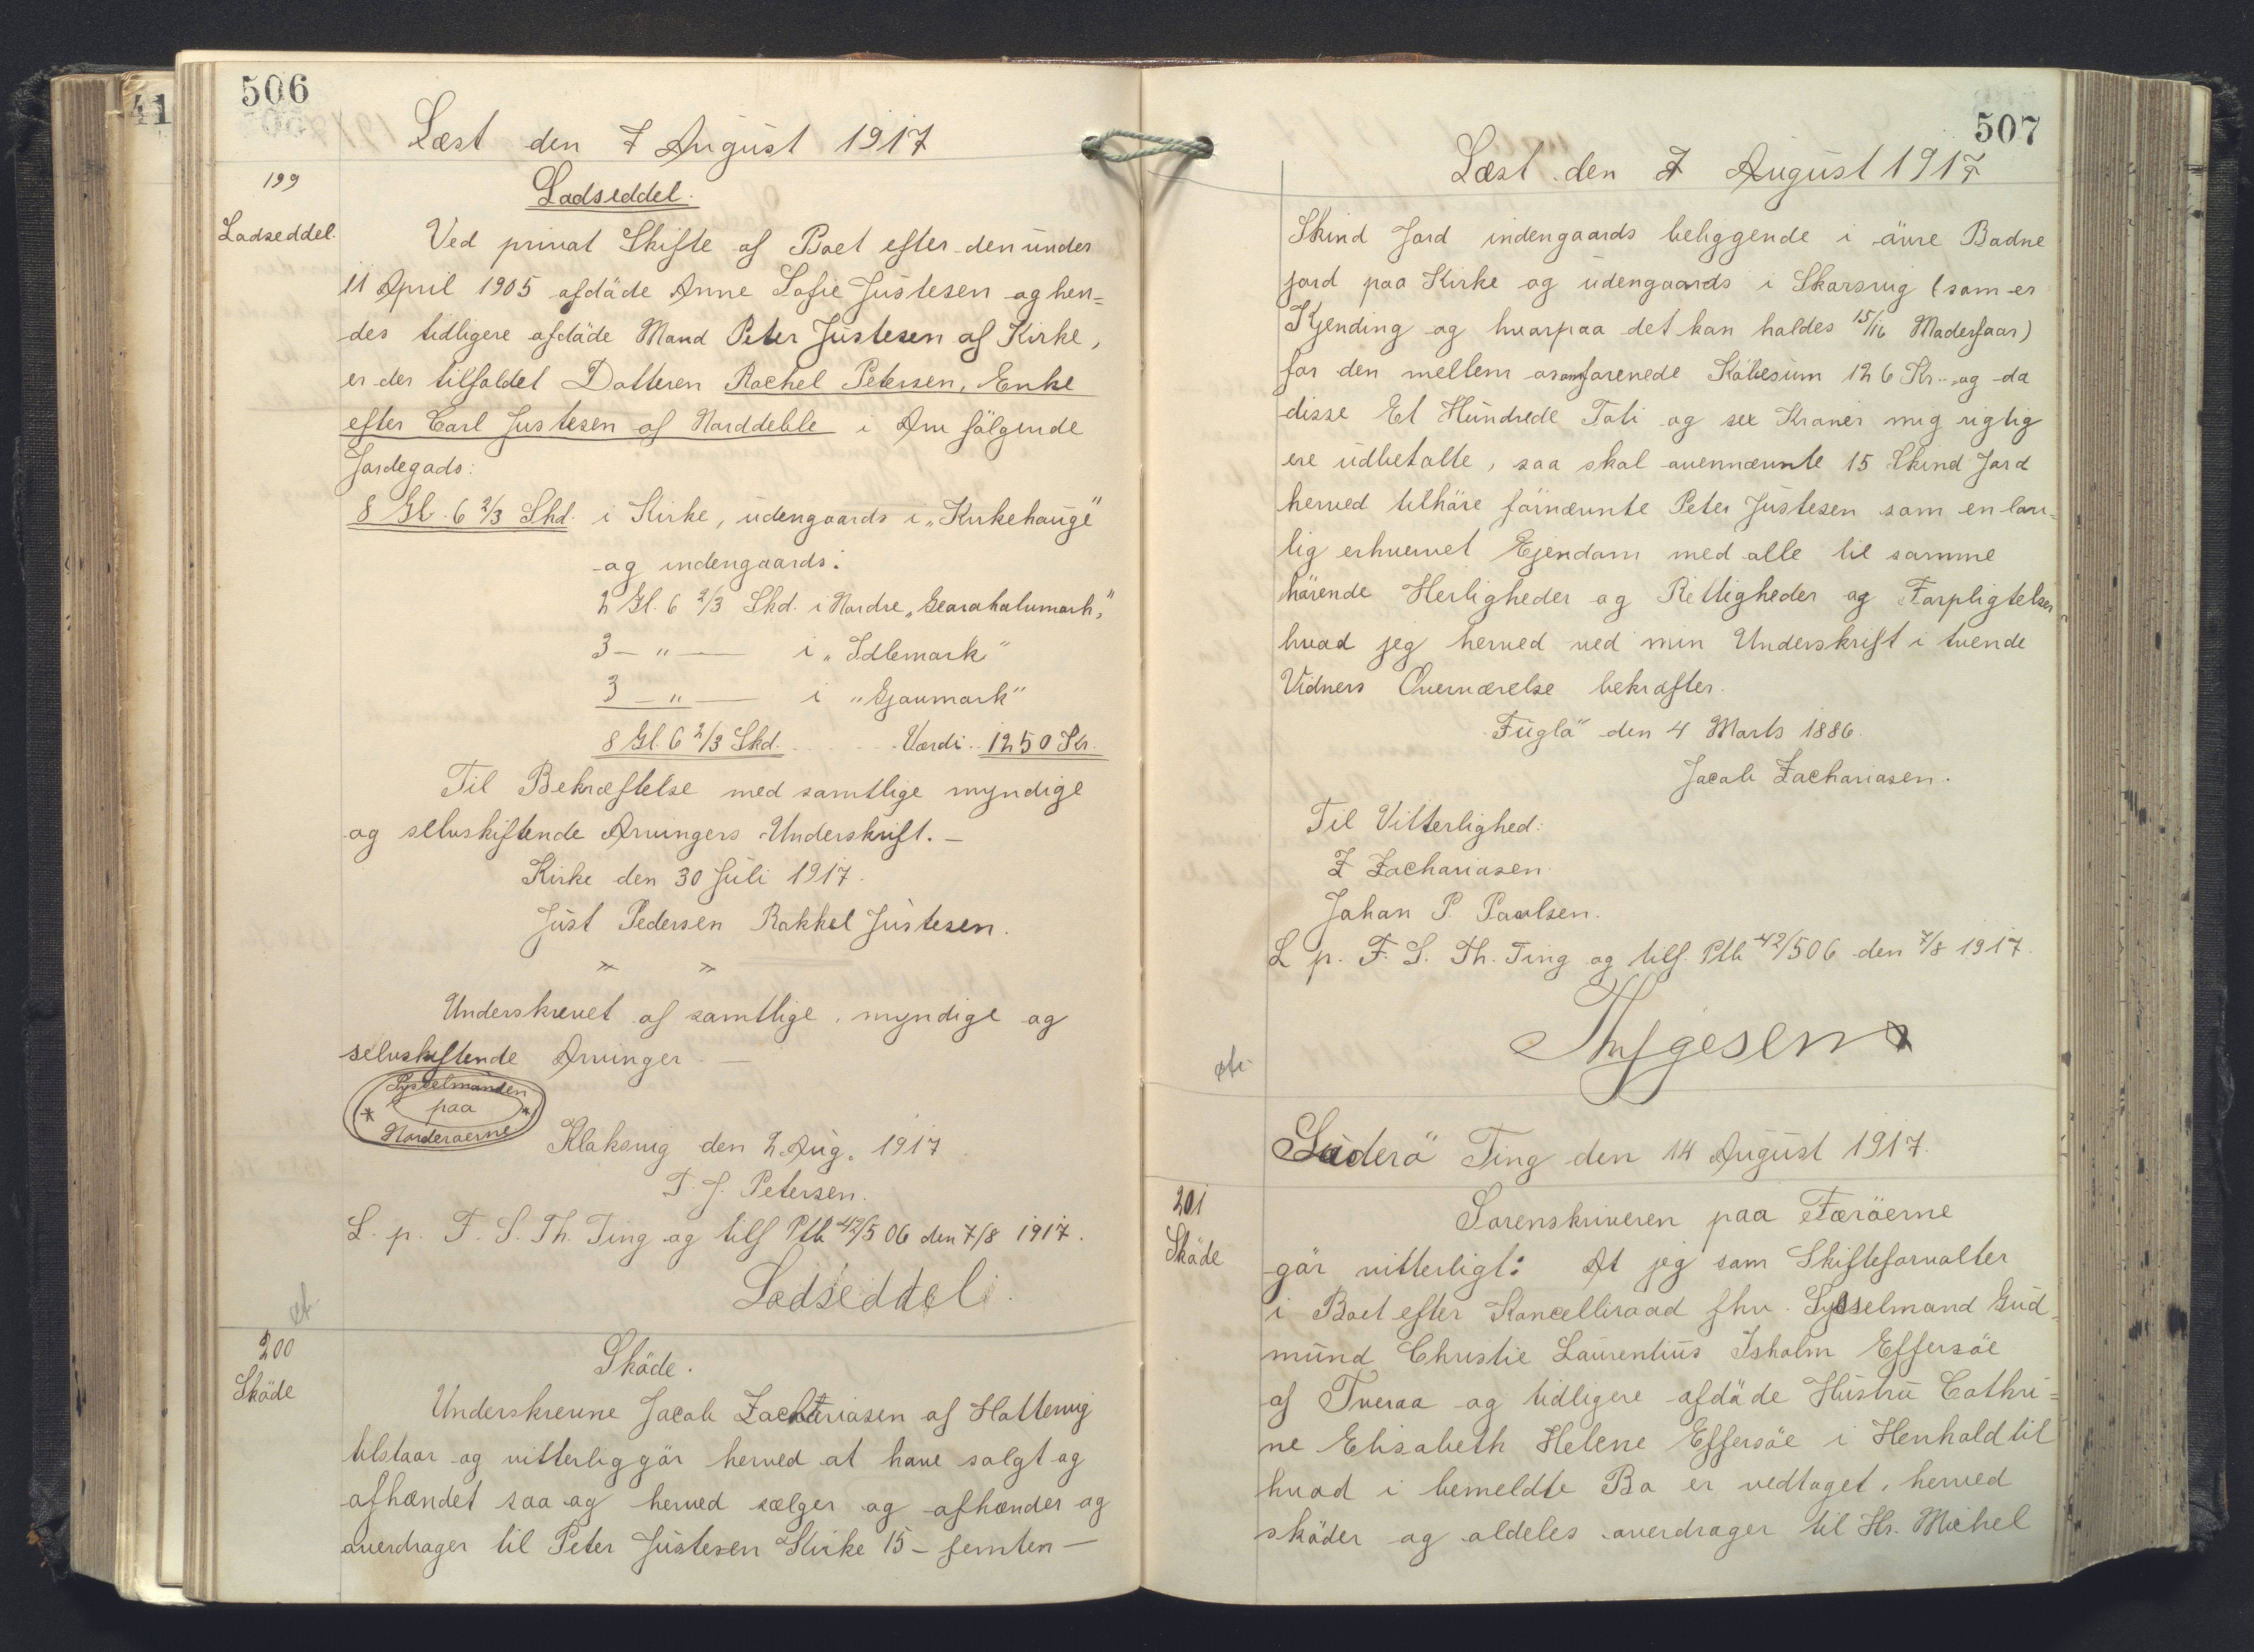 41
506
Læst den 7 August 1917
199
Lodseddel.
Lodseddel.
Ved privat Skifte af Boet efter den under
11 April 1905 afdöde Anne Sofie Justesen og hen=
des tidligere afdöde Mand Peter Justesen af Kirke,
er der tilfaldet Datteren Rachel Petersen, Enke
efter Carl Justesen af Norddeble i Arv fölgende
Jordegods:
8 Gl. 6 2/3 Skd. i Kirke, udengaards i „Kirkehauge"
og indengaards:
2 Gl. 6 2/3 Skd. i Nordre „Gearahalumark,"
3 — " — i „Idlemark"
3 — " — i "Gjaumark"
8 Gl. 6 2/3 Skd. Værdi. 1250 Kr.
Til Bekræftelse med samtlige myndige
og selvskiftende Arvingers Underskrift. —
Kirke den 30 Juli 1917.
Just Pedersen Rakkel Justesen.
" "
Underskrevet af samtlige, myndige og
selvskiftende Arvinger. —
Sysselmanden
* paa *
Norderøerne
Klaksvig den 2 Aug. 1917
T. J. Petersen.
L. p. F. S. Th. Ting og tilf Ptb 42/506 den 7/8 1917.
Lodseddel.
200
Sköde
Sköde.
Underskrevne Jacob Zachariasen af Hattervig
tilstaar og vitterliggör herved at have solgt og
afhændet saa og herved sælger og afhænder og
overdrager til Peter Justesen Kirke 15 – femten —
507
Læst den 7 August 1917
Skind Jord indengaards beliggende i övre Badne
jord paa Kirke og udengaards i Skarsvig (som er
Kjending og hvorpaa det kan holdes 15/16 Moderfaar)
for den mellem os omforenede Köbesum 126 Kr. og da
disse Et Hundrede Toti og sex Kroner mig rigtig
ere udbetalte, saa skal ovennævnte 15 Skind Jord
herved tilhöre förnævnte Peter Justesen som en lov=
lig erhvervet Ejendom med alle til samme
hörende Herligheder og Rettigheder og Forpligtelser
hvad jeg herved ved min Underskrift i tvende
Vidners Overværelse bekræfter.
Fuglö den 4 Marts 1886.
Jacob Zachariasen.
Til Vitterlighed:
Z Zachariasen.
Johan P. Paulsen.
L p. F. S. Th. Ting og tilf. Ptb 42/506 den 7/8 1917.
Thygesen
Süderö Ting den 14 August 1917.
201
Sköde
Sorenskriveren paa Færöerne
gör vitterligt: At jeg som Skifteforvalter
i Boet efter Kancelliraad fhv. Sysselmand Gud=
mund Christie Laurentius Isholm Effersöe
af Tveraa og tidligere afdöde Hustru Cathri=
ne Elisabeth Helene Effersöe i Henhold til
hvad i bemeldte Bo er vedtaget, herved
sköder og aldeles overdrager til Hr. Michel